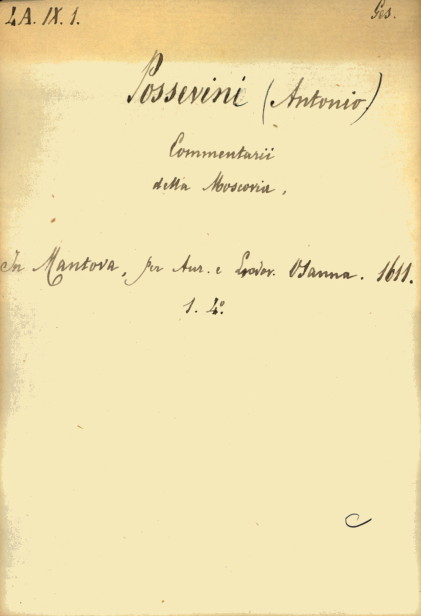 LA. IX. 1. Ges.
Possevini (Antonio)
Commentarii
della Moscovia,
In Mantova, per Aur. e Lodov. Osanna. 1611.
1. 4º.
C